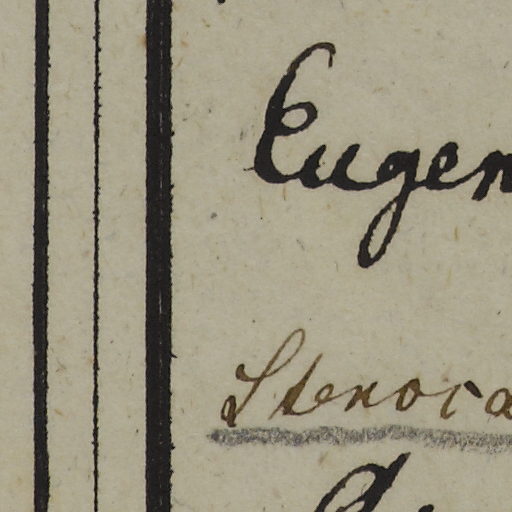 Eugen
Stenoca